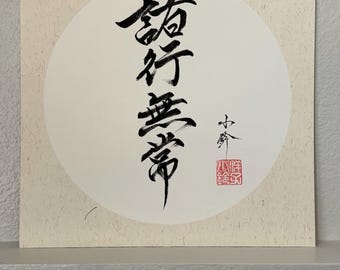 諸行無常
小鈴